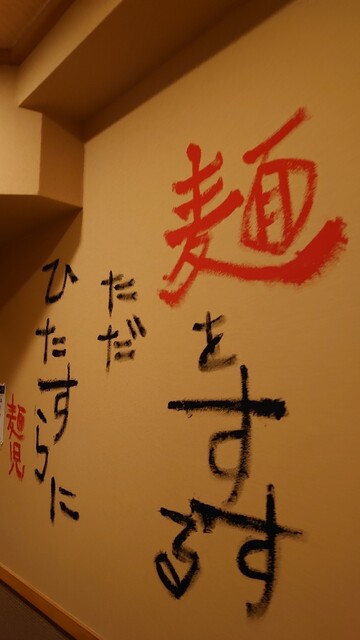 麺をすする
ただ
ひたすらに
麺児